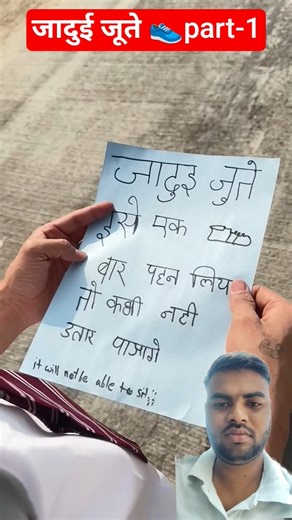 जादुई जूते 👟part-1
जादुइ जुते
इसे एक
बार पहन लिय
तो कभी नही
उतार पाआगे
it will not be able to sit